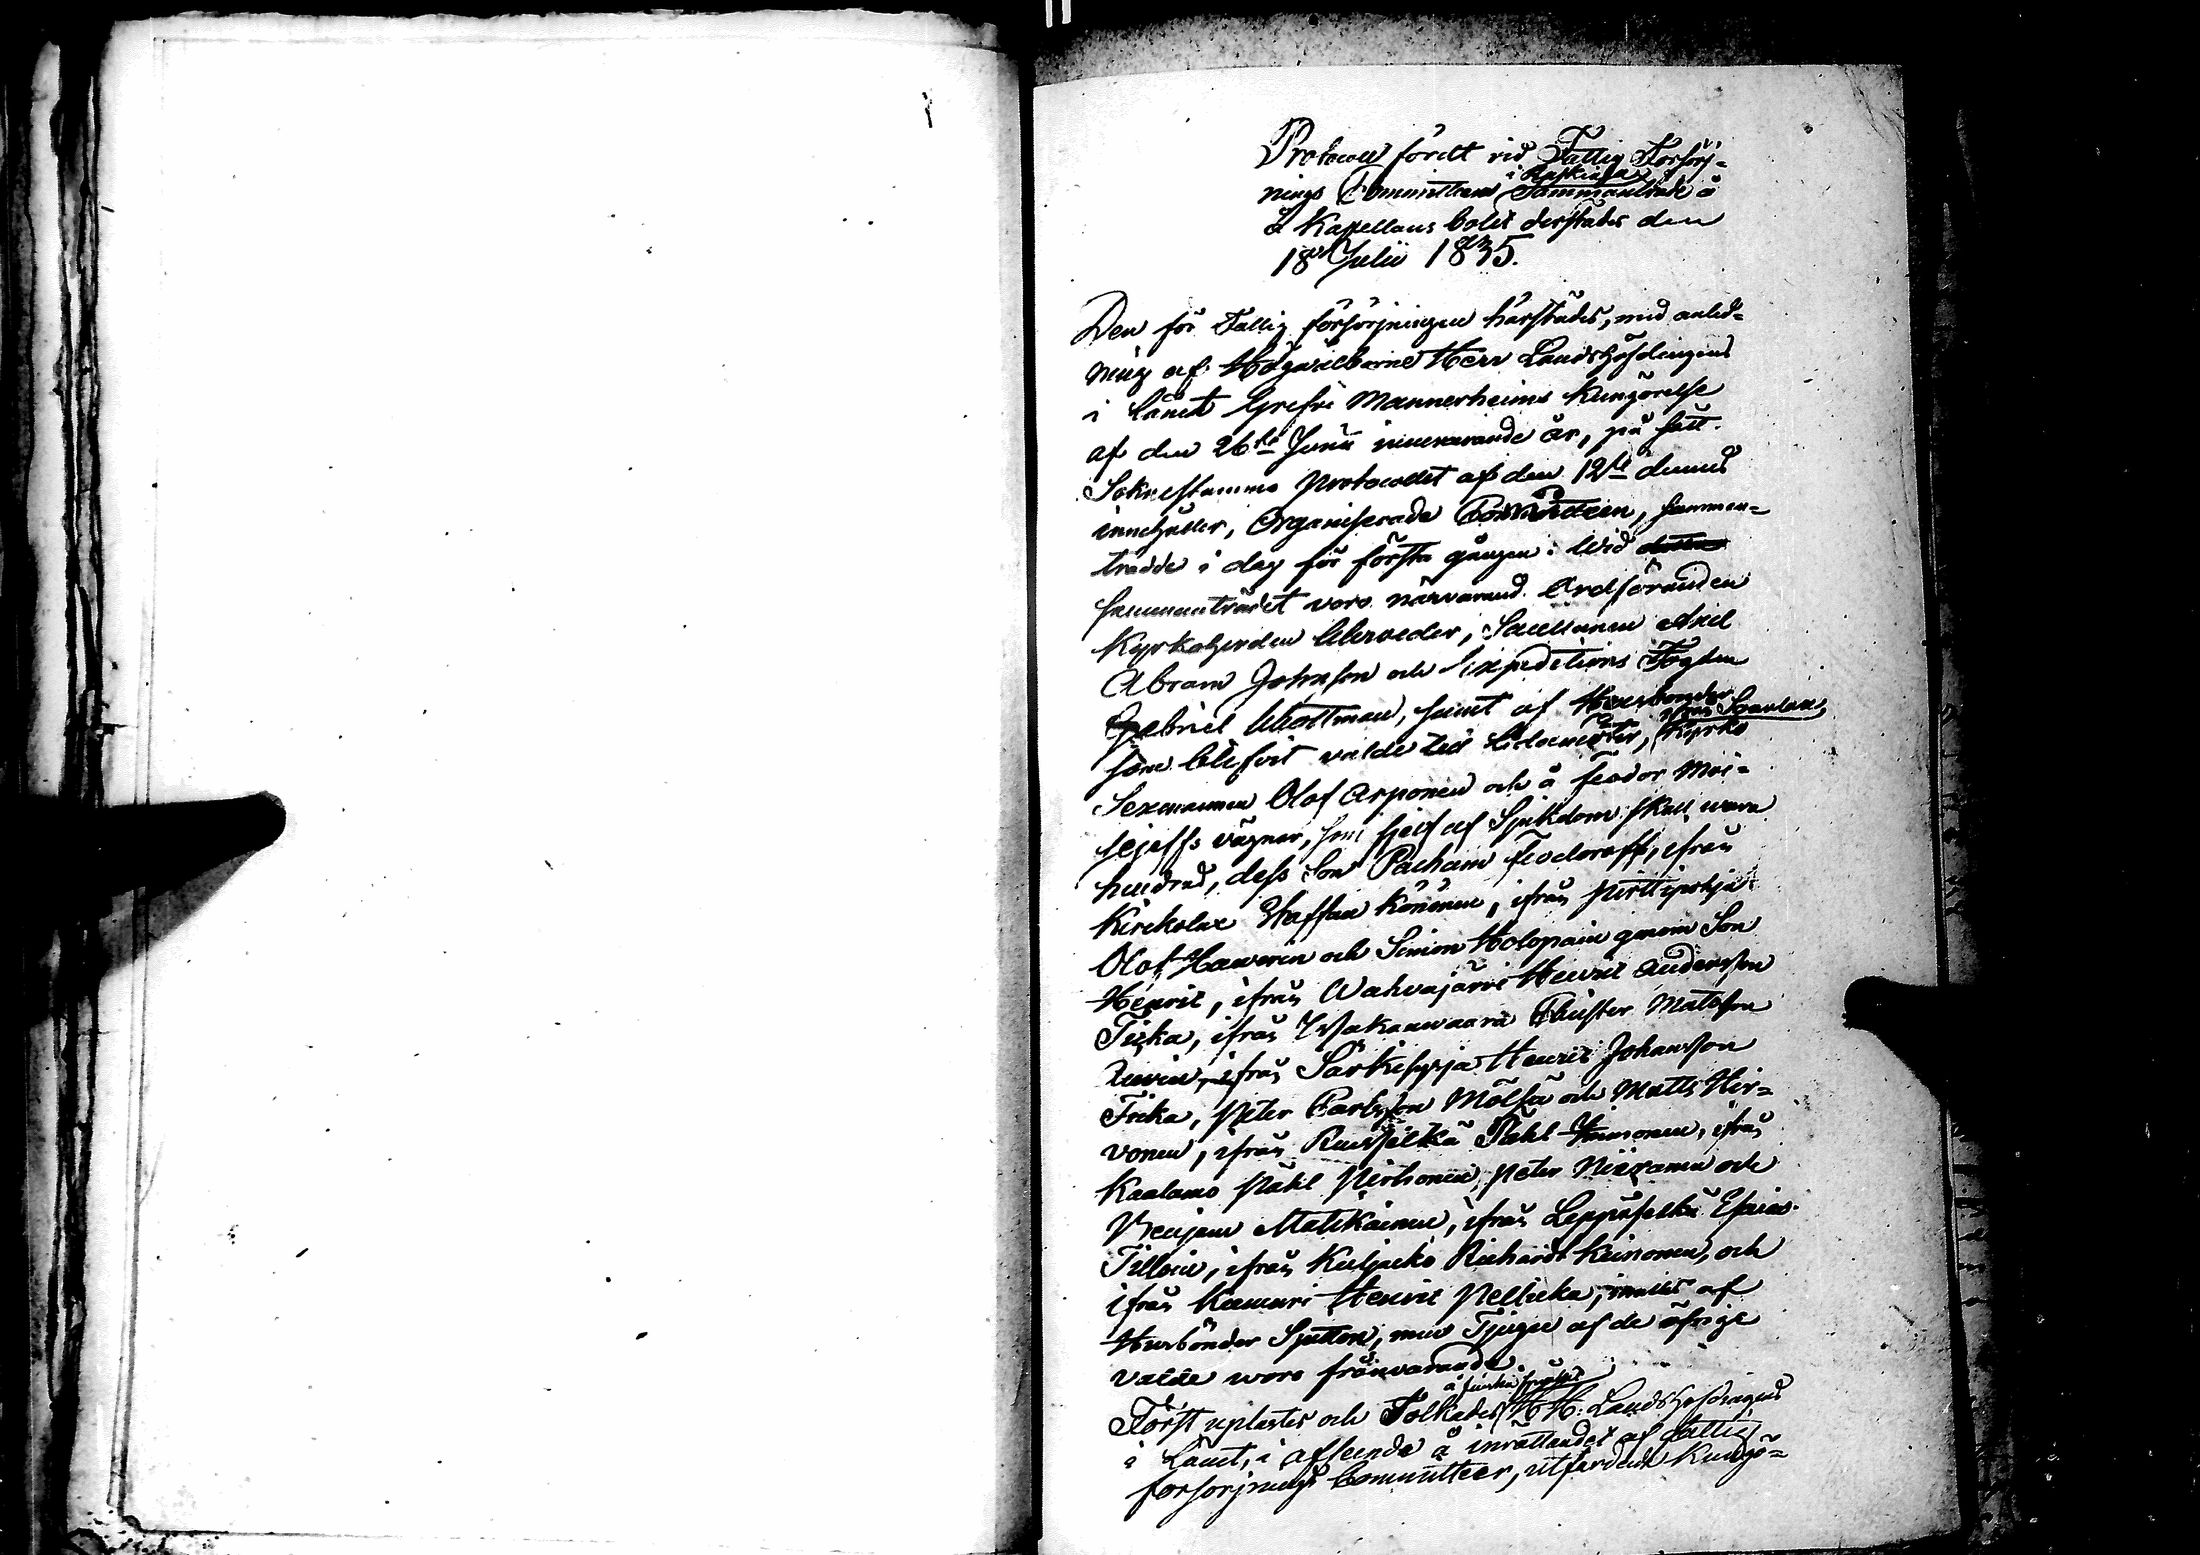 Protocoll fördt vid Fattig Försörj-
nings Committeens i Ruskiala Sammanträde å
å Kapellans bolet derstädes den
18de Julii 1835.
Den för Fattig försörjningen härstädes, med anled-
ning af Högvälborne Herr Landshöfdingens
i länet Grefve Mannerheims kungörelse
af den 26te Junii innevarande år, på sätt
Sokne stammo Protocollet af den 12te dennes
innehåller, Organiserade Committéen, samman-
trädde i dag för första gången. Wid
sammanträdet voro närvarand Ordföranden
Kyrkoherden Alcenius, Axel
Abram Johnson och Expeditions Fogden
Gabriel Wottman, samt af Husbönder
som blifvit valde till Ledamöter, ifrån
Kyrko
Sexmannen Olof Arponen och å Feodor Moi-
sejeffs vägnar, som sjelf af Sjukdom skall wara
hindrad, dess Son Pachom Feodoroff, ifrån
Kirckolax Staffan Könönen, ifrån Pirttipohja
Olof Hawerin och Simon Holopain genom Son
Henric, ifrån Wahvajärvi Henric Andersson
Ticka, ifrån Istakanwaara Christer Mattsson
ifrån Särkisyrja Henric Johansson
Ticka, Peter Carlsson Mölsä och Matts Hir-
vonen, ifrån Ruisselkä Påhl Himonen, ifrån
Kaalamo Påhl Pirhonen, Peter och
Benjam Matikainen, ifrån Leppäselkä Esaias
Tilloin, ifrån Kuljacko Richardt Keinonen, och
ifrån Kumuri Henric Peltocka, inalles af
Husbönder Sjutton, men Tjugu af de öfrige
valde woro frånvarande.
Först uplästes och Tolkades å finska språket H H. Landshöfdingens
i Länet, i afseende å inrättandet af fattig
försörjnings Committeer, utfärdade Kungö-